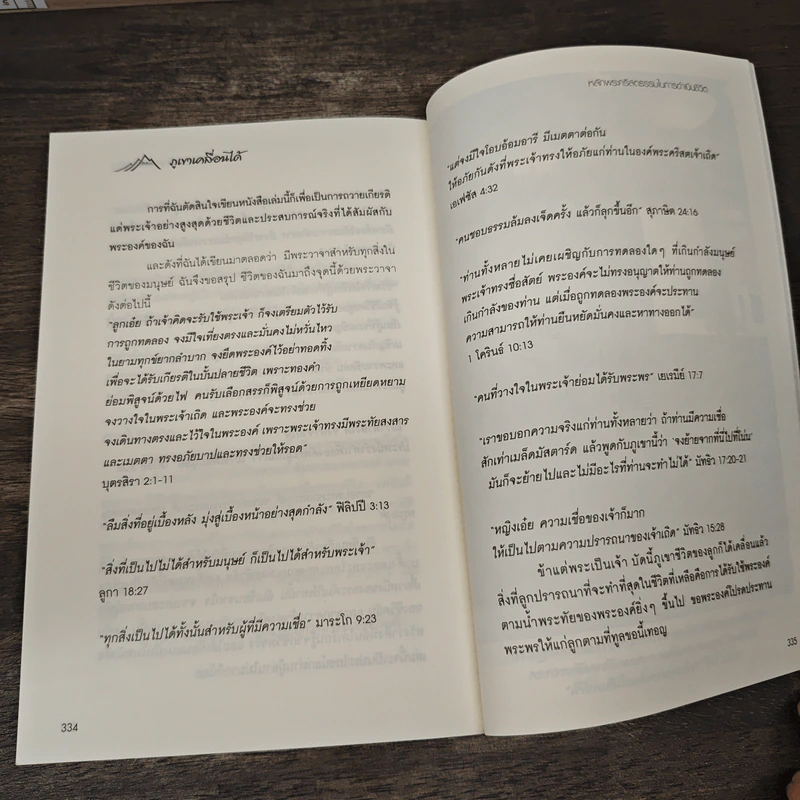 ภูเขาเคลื่อนได้
การที่ฉันตัดสินใจเขียนหนังสือเล่มนี้ก็เพื่อเป็นการถวายเกียรติ
แด่พระเจ้าอย่างสูงสุดด้วยชีวิตและประสบการณ์จริงที่ได้สัมผัสกับ
พระองค์ของฉัน
และดังที่ฉันได้เขียนมาตลอดว่า มีพระวาจาสำหรับทุกสิ่งใน
ชีวิตของมนุษย์ ฉันจึงขอสรุป ชีวิตของฉันมาถึงจุดนี้ด้วยพระวาจา
ดังต่อไปนี้
"ลูกเอ๋ย ถ้าเจ้าคิดจะรับใช้พระเจ้า ก็จงเตรียมตัวไว้รับ
การถูกทดลอง จงมีใจเที่ยงตรงและมั่นคงไม่หวั่นไหว
ในยามทุกข์ยากลำบาก จงยึดพระองค์ไว้อย่าทอดทิ้ง
เพื่อจะได้รับเกียรติในบั้นปลายชีวิต เพราะทองคำ
ย่อมพิสูจน์ด้วยไฟ คนรับเลือกสรรก็พิสูจน์ด้วยการถูกเหยียดหยาม
จงวางใจในพระเจ้าเถิด และพระองค์จะทรงช่วย
จงเดินทางตรงและไว้ใจในพระองค์ เพราะพระเจ้าทรงมีพระทัยสงสาร
และเมตตา ทรงอภัยบาปและทรงช่วยให้รอด"
บุตรสิรา 2:1-11
"ลืมสิ่งที่อยู่เบื้องหลัง มุ่งสู่เบื้องหน้าอย่างสุดกำลัง" ฟิลิปปี 3:13
"สิ่งที่เป็นไปไม่ได้สำหรับมนุษย์ ก็เป็นไปได้สำหรับพระเจ้า"
ลูกา 18:27
"ทุกสิ่งเป็นไปได้ทั้งนั้นสำหรับผู้ที่มีความเชื่อ" มาระโก 9:23
334
หลักพระคริสตธรรมในการดำเนินชีวิต
"แต่จงมีใจโอบอ้อมอารี มีเมตตาต่อกัน
ให้อภัยกันดังที่พระเจ้าทรงให้อภัยแก่ท่านในองค์พระคริสตเจ้าเถิด"
เอเฟซัส 4:32
"คนชอบธรรมล้มลงเจ็ดครั้ง แล้วก็ลุกขึ้นอีก" สุภาษิต 24:16
"ท่านทั้งหลายไม่เคยเผชิญกับการทดลองใดๆ ที่เกินกำลังมนุษย์
พระเจ้าทรงซื่อสัตย์ พระองค์จะไม่ทรงอนุญาตให้ท่านถูกทดลอง
เกินกำลังของท่าน แต่เมื่อถูกทดลองพระองค์จะประทาน
ความสามารถให้ท่านยืนหยัดมั่นคงและหาทางออกได้"
1 โครินธ์ 10:13
"คนที่วางใจในพระเจ้าย่อมได้รับพระพร" เยเรมีย์ 17:7
"เราขอบอกความจริงแก่ท่านทั้งหลายว่า ถ้าท่านมีความเชื่อ
สักเท่าเมล็ดมัสตาร์ด แล้วพูดกับภูเขานี้ว่า 'จงย้ายจากที่นี่ไปที่โน่น'
มันก็จะย้ายไปและไม่มีอะไรที่ท่านจะทำไม่ได้" มัทธิว 17:20-21
"หญิงเอ๋ย ความเชื่อของเจ้าก็มาก
ให้เป็นไปตามความปรารถนาของเจ้าเถิด" มัทธิว 15:28
ข้าแต่พระเป็นเจ้า บัดนี้ภูเขาชีวิตของลูกก็ได้เคลื่อนแล้ว
สิ่งที่ลูกปรารถนาที่จะทำที่สุดในชีวิตที่เหลือคือการได้รับใช้พระองค์
ตามน้ำพระทัยของพระองค์ยิ่งๆ ขึ้นไป ขอพระองค์โปรดประทาน
พระพรให้แก่ลูกตามที่ทูลขอนี้เทอญ
335